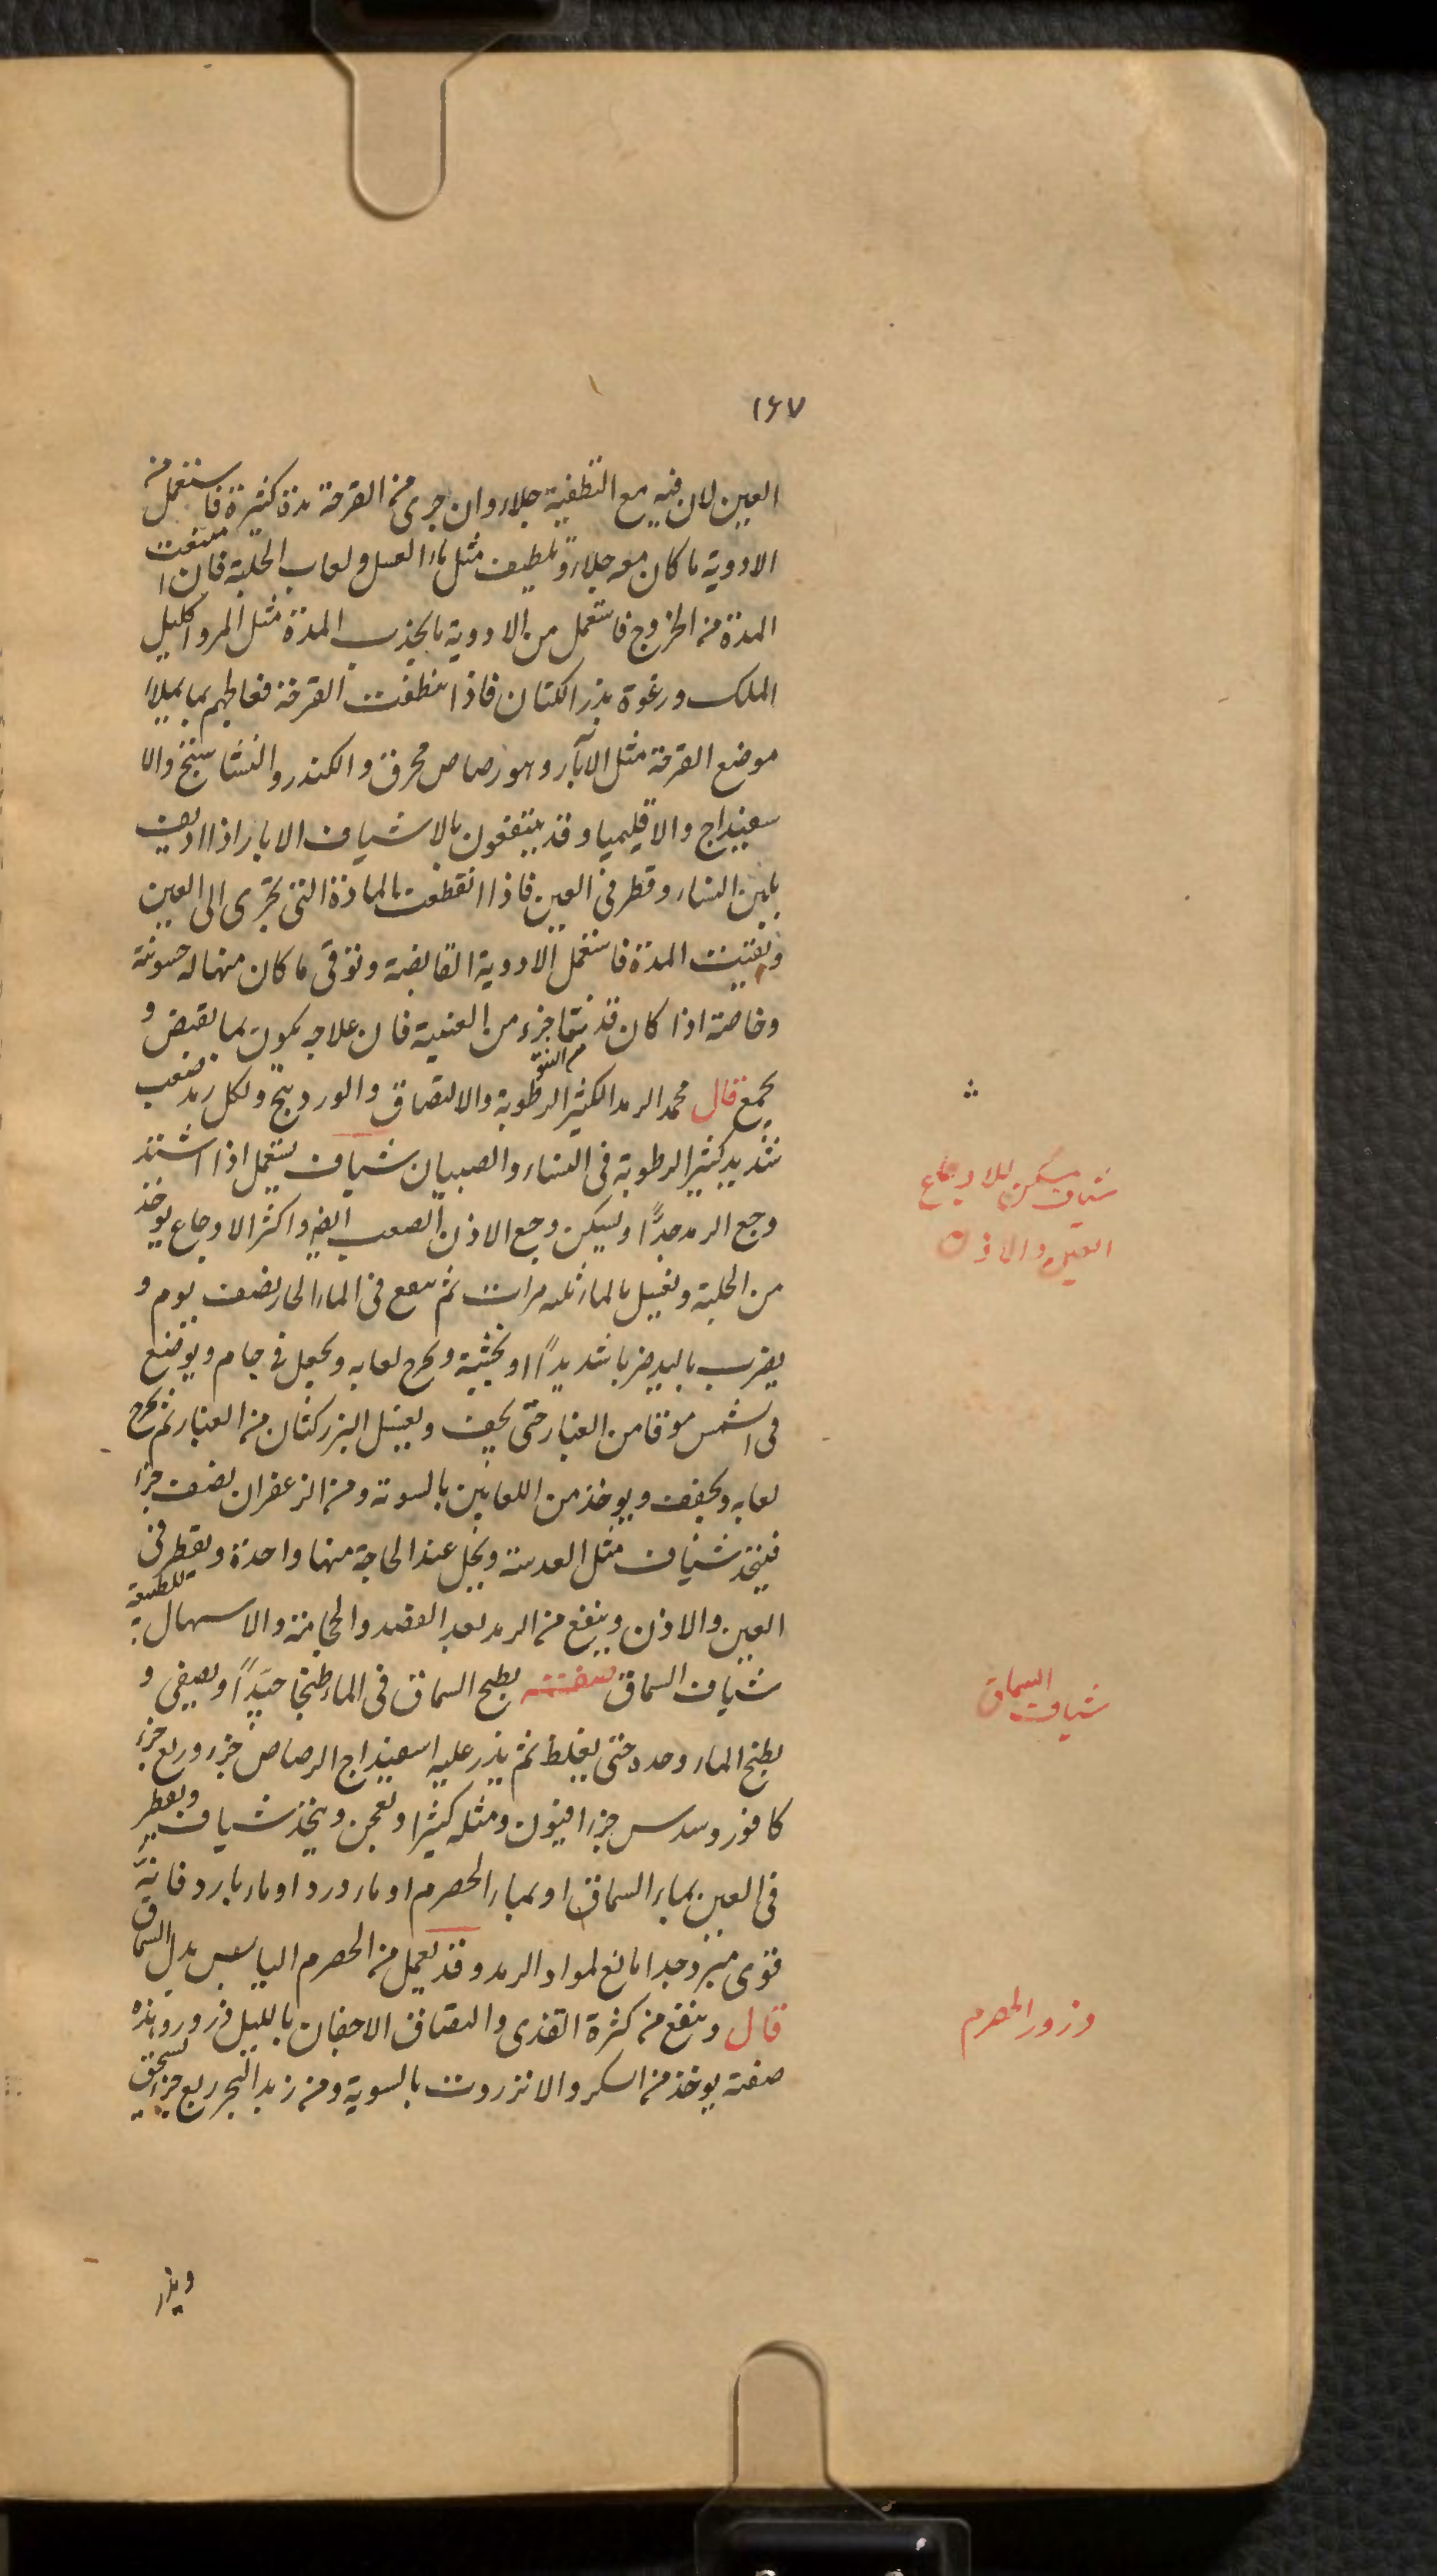 ١٦٧
العين لان فيه مع التطفية جلاء وان جرى من القرحة مدة كثيرة فاستعمل من
الادوية ما كان معه جلاء وتلطيف مثل ماء العسل ولعاب الحلبة فان امتنعت
المدة من الخروج فاستعمل من الادوية ما يجذب المدة مثل المر واكليل
الملك ورغوة بذر الكتان فاذا انظفت القرحة فعالجهم بما يملاء
موضع القرحة مثل الآبار وهو رصاص محرق والكندر والنشاستج والا
سفيداج والاقليميا وقد ينتفعون بالاشياف الابار اذا اديف
بلبن النساء وقطر في العين فاذا انقطعت المادة التي تجرى الى العين
وبقيت المدة فاستعمل الادوية القابضة وتوقى ما كان منها له خشونة
وخاصة اذا كان قد نتا جزء من العنبية فان علاجه يكون بما يقبض و
يجمع من النتو قال محمد الرمد الكثير الرطوبة والالتصاق والوردينج ولكل رمد صعب
شديد كثير الرطوبة في النساء والصبيان شياف يستعمل اذا اشتد
وجع الرمد جدًّا ويسكن وجع الاذن الصعب ايضا واكثر الاوجاع يوخذ
من الحلبة وتغسل بالماء ثلثه مرات ثم ينقع في الماء الحار نصف يوم و
يضرب باليد ضربا شديدًا او بخشبة ويخرج لعابه ويجعل في جام ويوضع
في الشمس موقا من الغبار حتى يجف ويغسل البزر كتان من الغبار ثم يخرج
لعابه ويجفف ويوخذ من اللعابين بالسوية ومن الزعفران نصف جزء
فيتخذ شياف مثل العدسة ويحل عند الحاجة منها واحدة ويقطر في
العين والاذن وينفع من الرمد بعد الفصد والحجامة والاسهال للطبيعة
شياف السماق صفته يطبخ السماق في الماء طبخا جيدًا ويصفى و
يطبخ الماء وحده حتى يغلظ ثم يذر عليه اسفيداج الرصاص جزء وربع جزء
كافور وسدس جزء افيون ومثله كثيرا ويعجن ويتخذ شياف ويقطر
في العين بماء السماق او بماء الحصرم او ماء ورد او ماء بارد فانّه
قوى مبرد جدا مانع لمواد الرمد وقد يعمل من الحصرم اليابس بدل السماق
قال وينفع من كثرة القذى والتصاق الاجفان بالليل ذرور وهذه
صفته يوخذ من السكر والانزروت بالسوية ومن زبد البحر ربع جزء يسحق
ويذر
شياف مسكن للاوجاع
العين والاذن
شياف السماق
ذرور الحصرم